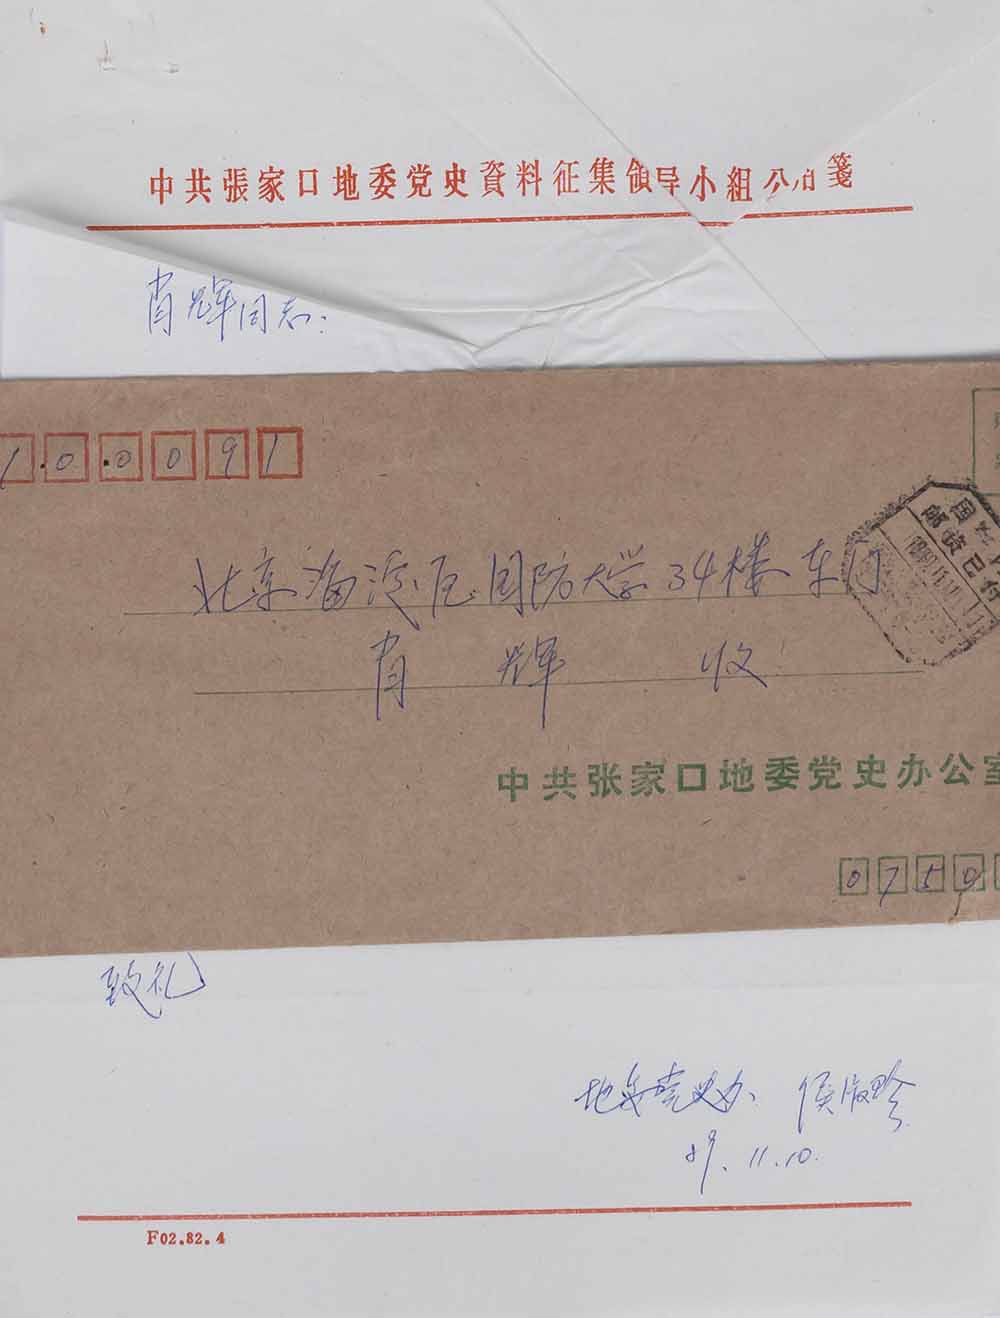 中共張家口地委党史資料征集領导小組公用箋
肖辉同志:
100091
北京海淀区国防大学34楼东门
国
邮资已付
肖辉 收
中共张家口地委党史办公室
0750
致礼
地委党史办 侯淑玲
89.11.10.
F02.82.4